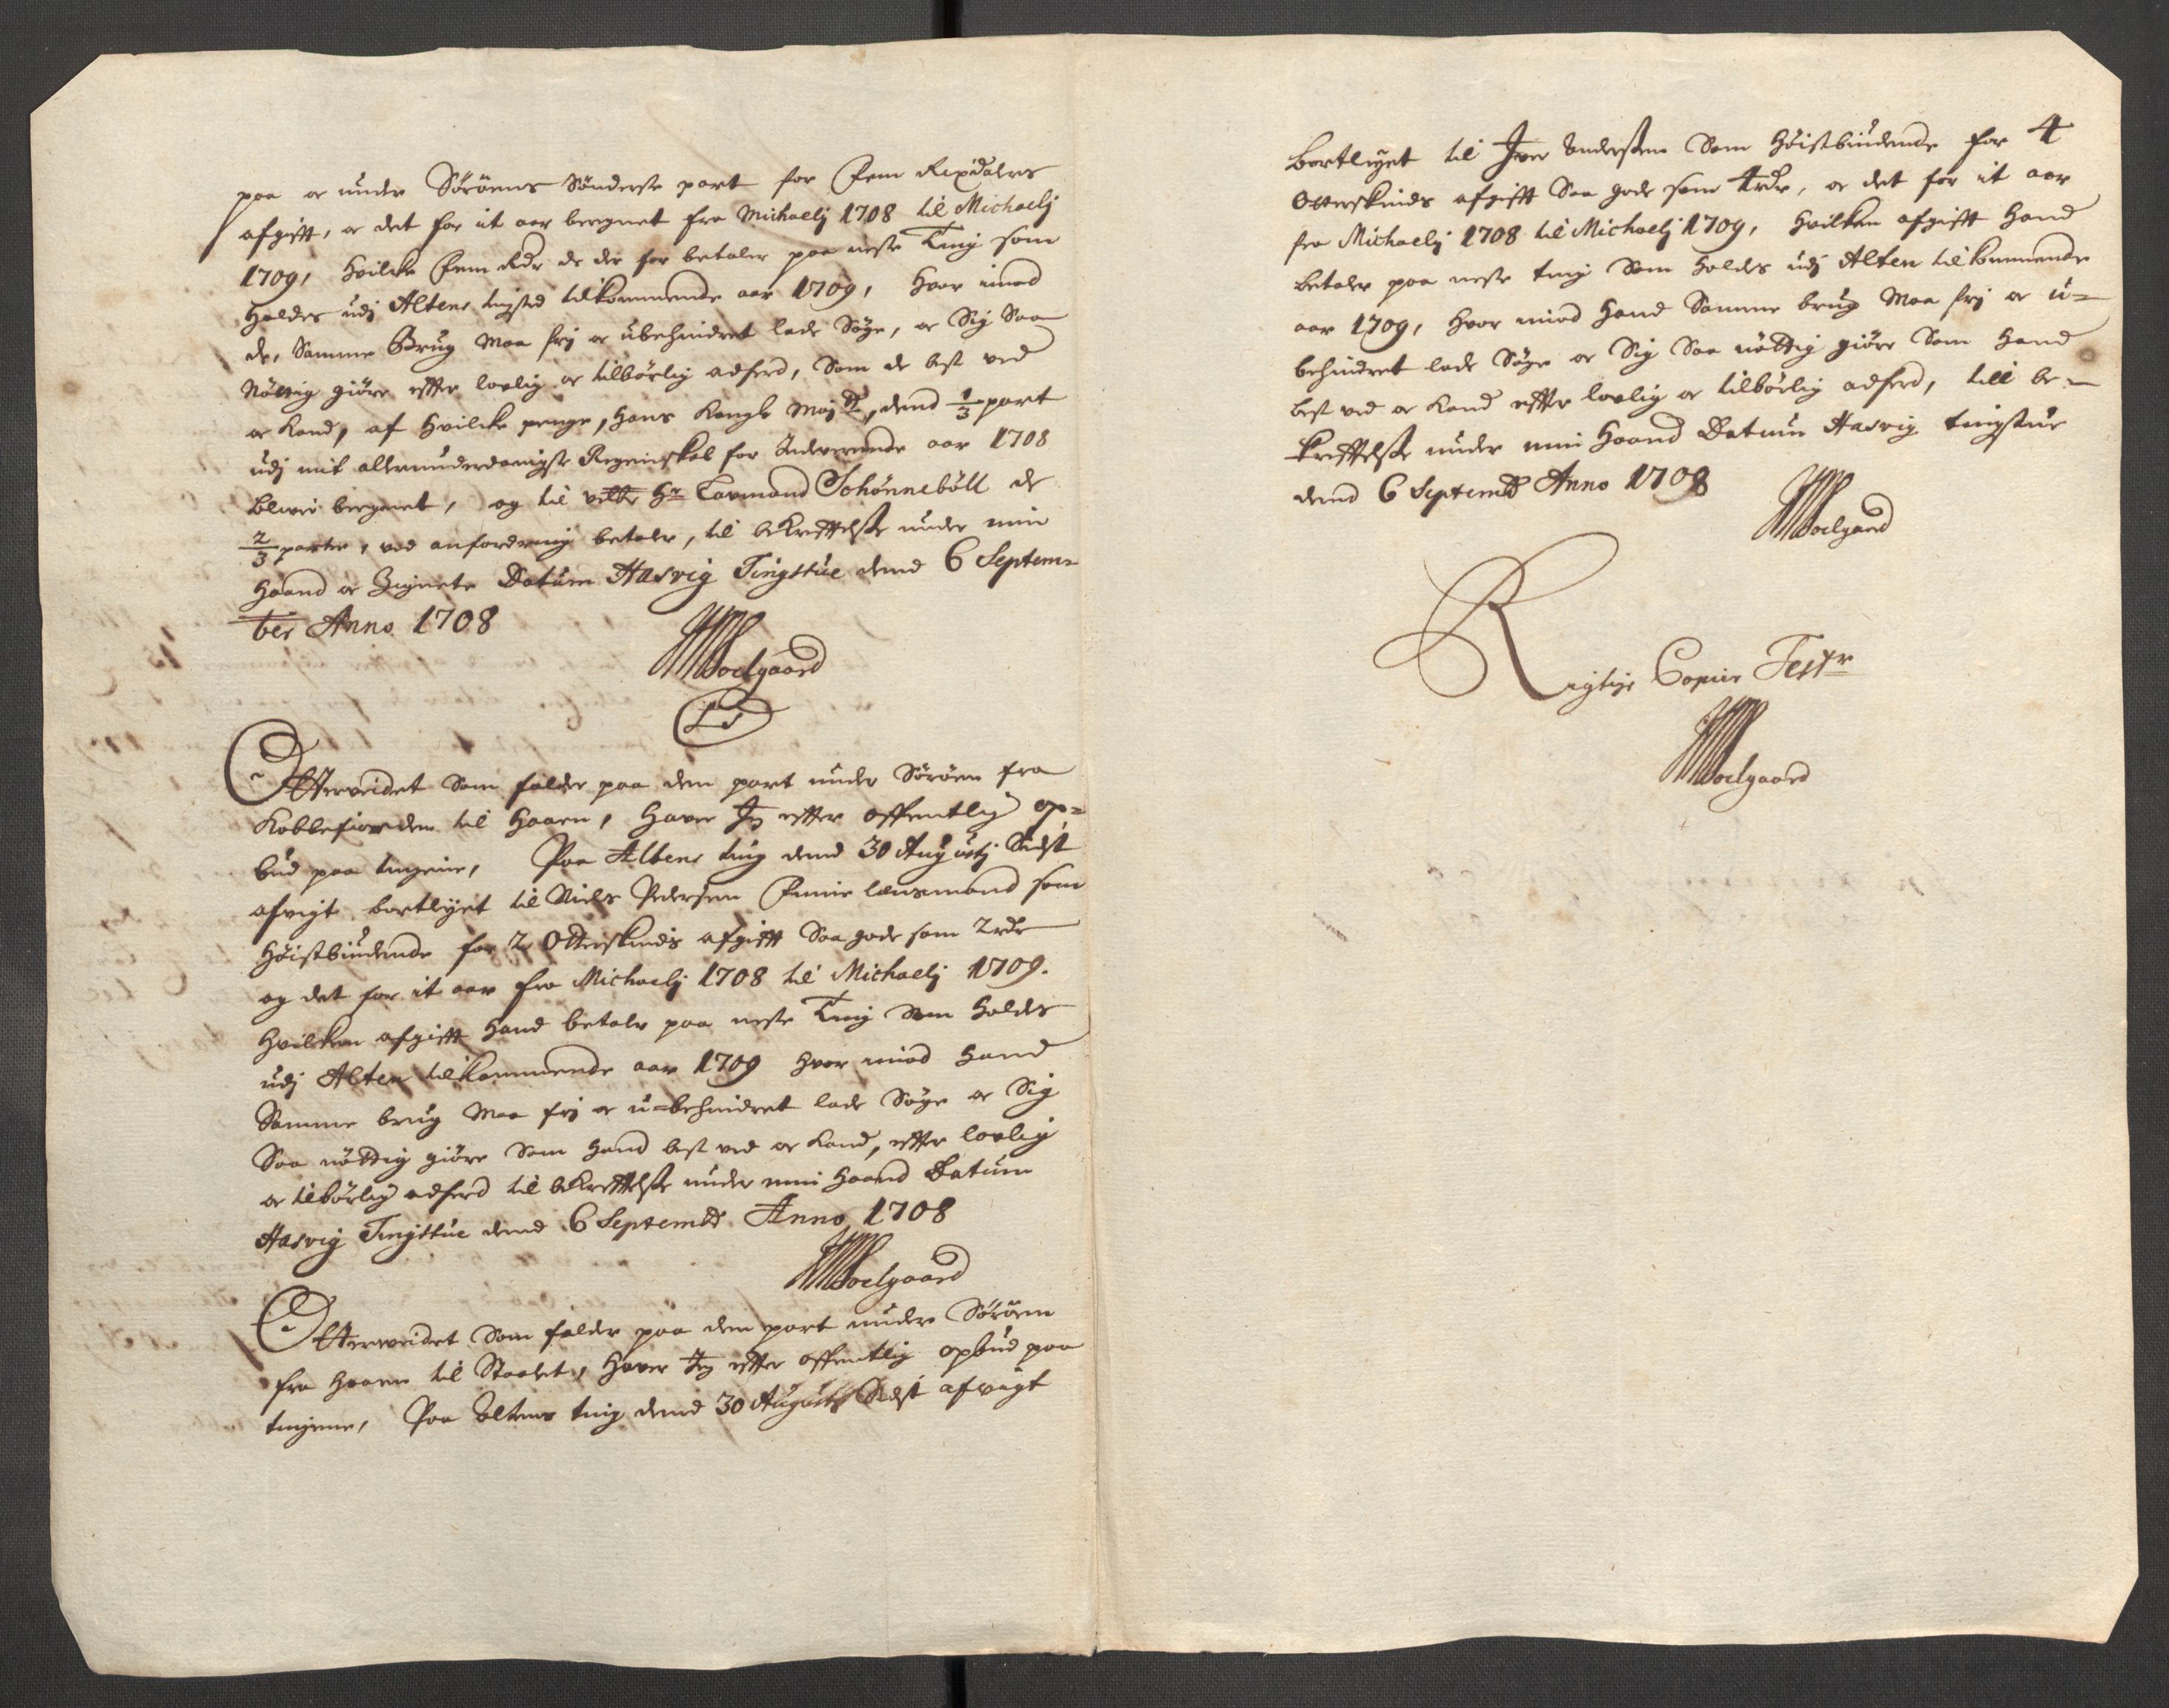 paa oc under Söröens Sönderste part for Fem Rixdalers
afgifft, oc det for it aar beregnet fra Michaelj 1708 til Michaelj
1709, hvilcke Fem Rdr de der for betaler paa neste Ting som
holdes udj Altens tingsted tilkommende aar 1709, hvor imod
de, Samme Brug maa frj oc ubehindret lade Söge, oc Sig Saa
Nöttig giöre effter lovlig oc tilbörlig adferd, Som de best ved
oc kand, af hvilcke penge, hans Kongl Maytt, dend 1/3 part
udj mit allerunderdanigste Regenskab for Indeverende aar 1708
blever beregnet, og til velbr Hr Laumand Schönneböll de
2/3 parter, ved anfordring betaler, til bekrefftelsse under min
Haand oc Zignete Datum Hasvig Tingstue dend 6 Septem-
ber Anno 1708
Soelgaard
LS
Otterveidet Som falder paa dem part under Söröen fra
Koblefiorden til Haaen, Haver Jeg effter offentlig op-
bud paa tingene, Paa Altens ting dend 30 Augustj Sidst
afvigt bortlyet til Niels Pedersen Finne lensmand som
Höistbiudende for 2 Otterskinds afgifft Saa gode som 2 rdr
og det for it aar fra Michaelj 1708 til Michaelj 1709.
Hvilcken afgifft hand betaler paa neste Ting Som holdes
udj Alten tilkommende aar 1709 hvor imod hand
Samme brug maa frj oc u-behindret lade Söge oc Sig
Saa nöttig giöre Som hand best ved oc kand, effter lovlig
oc tilbörlig adferd til bekrefftelsse under min Haand Datum
Hasvig Tingstue dend 6 Septembr Anno 1708
Soelgaard
Otterveidet Som falder paa dem part under Söröen
fra Haaen til Staalet, Haver Jeg effter offentlig opbud paa
tingene, Paa Altens ting dend 30 Augustj Sidst afvigt
bortlyet til Iver Andersen Som Höistbiudende for 4
Otterskinds afgifft Saa gode som 4 rdr, oc det for it aar
fra Michaelj 1708 til Michaelj 1709, hvilken afgifft hand
betaler paa neste ting Som holdes udj Alten tilkommende
aar 1709, hvor imod hand Samme brug maa frj oc u-
behindret lade Söge oc Sig Saa nöttig giöre Som hand
best ved oc kand effter lovlig oc tilbörlig adferd, till be-
krefftelsse under min Haand Datum Hasvig tingstue
dend 6 Septembr Anno 1708
Soelgaard
Rigtige Copier Testr
Soelgaard